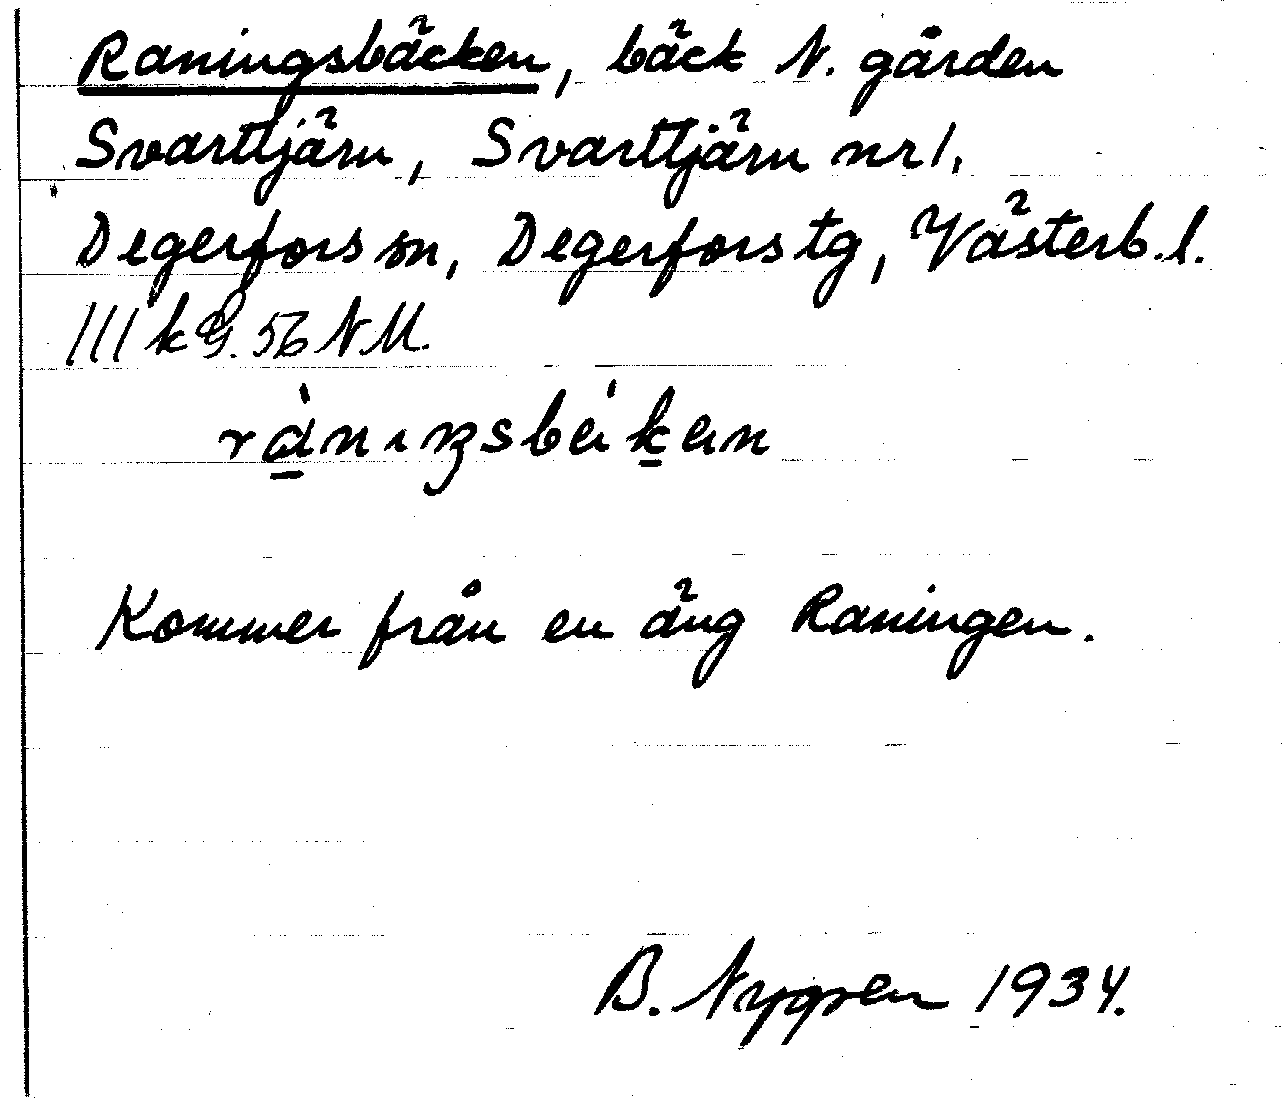 Raningsbäcken, bäck N. gården
Svarttjärn, Svarttjärn nr 1,
Degerfors sn, Degerfors tg, Västerb.l.
III k 9. 56 NM.
Kommer från en äng Raningen.
B. Nygren 1934.